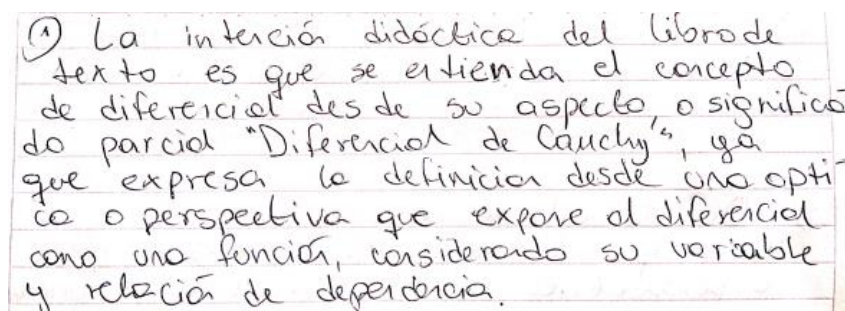 ① La intención didáctica del libro de
texto es que se entienda el concepto
de diferencial desde su aspecto, o significa
do parcial "Diferencial de Cauchy", ya
que expresa la definición desde una ópti-
ca o perspectiva que expone al diferencial
como una función, considerando su variable
y relación de dependencia.